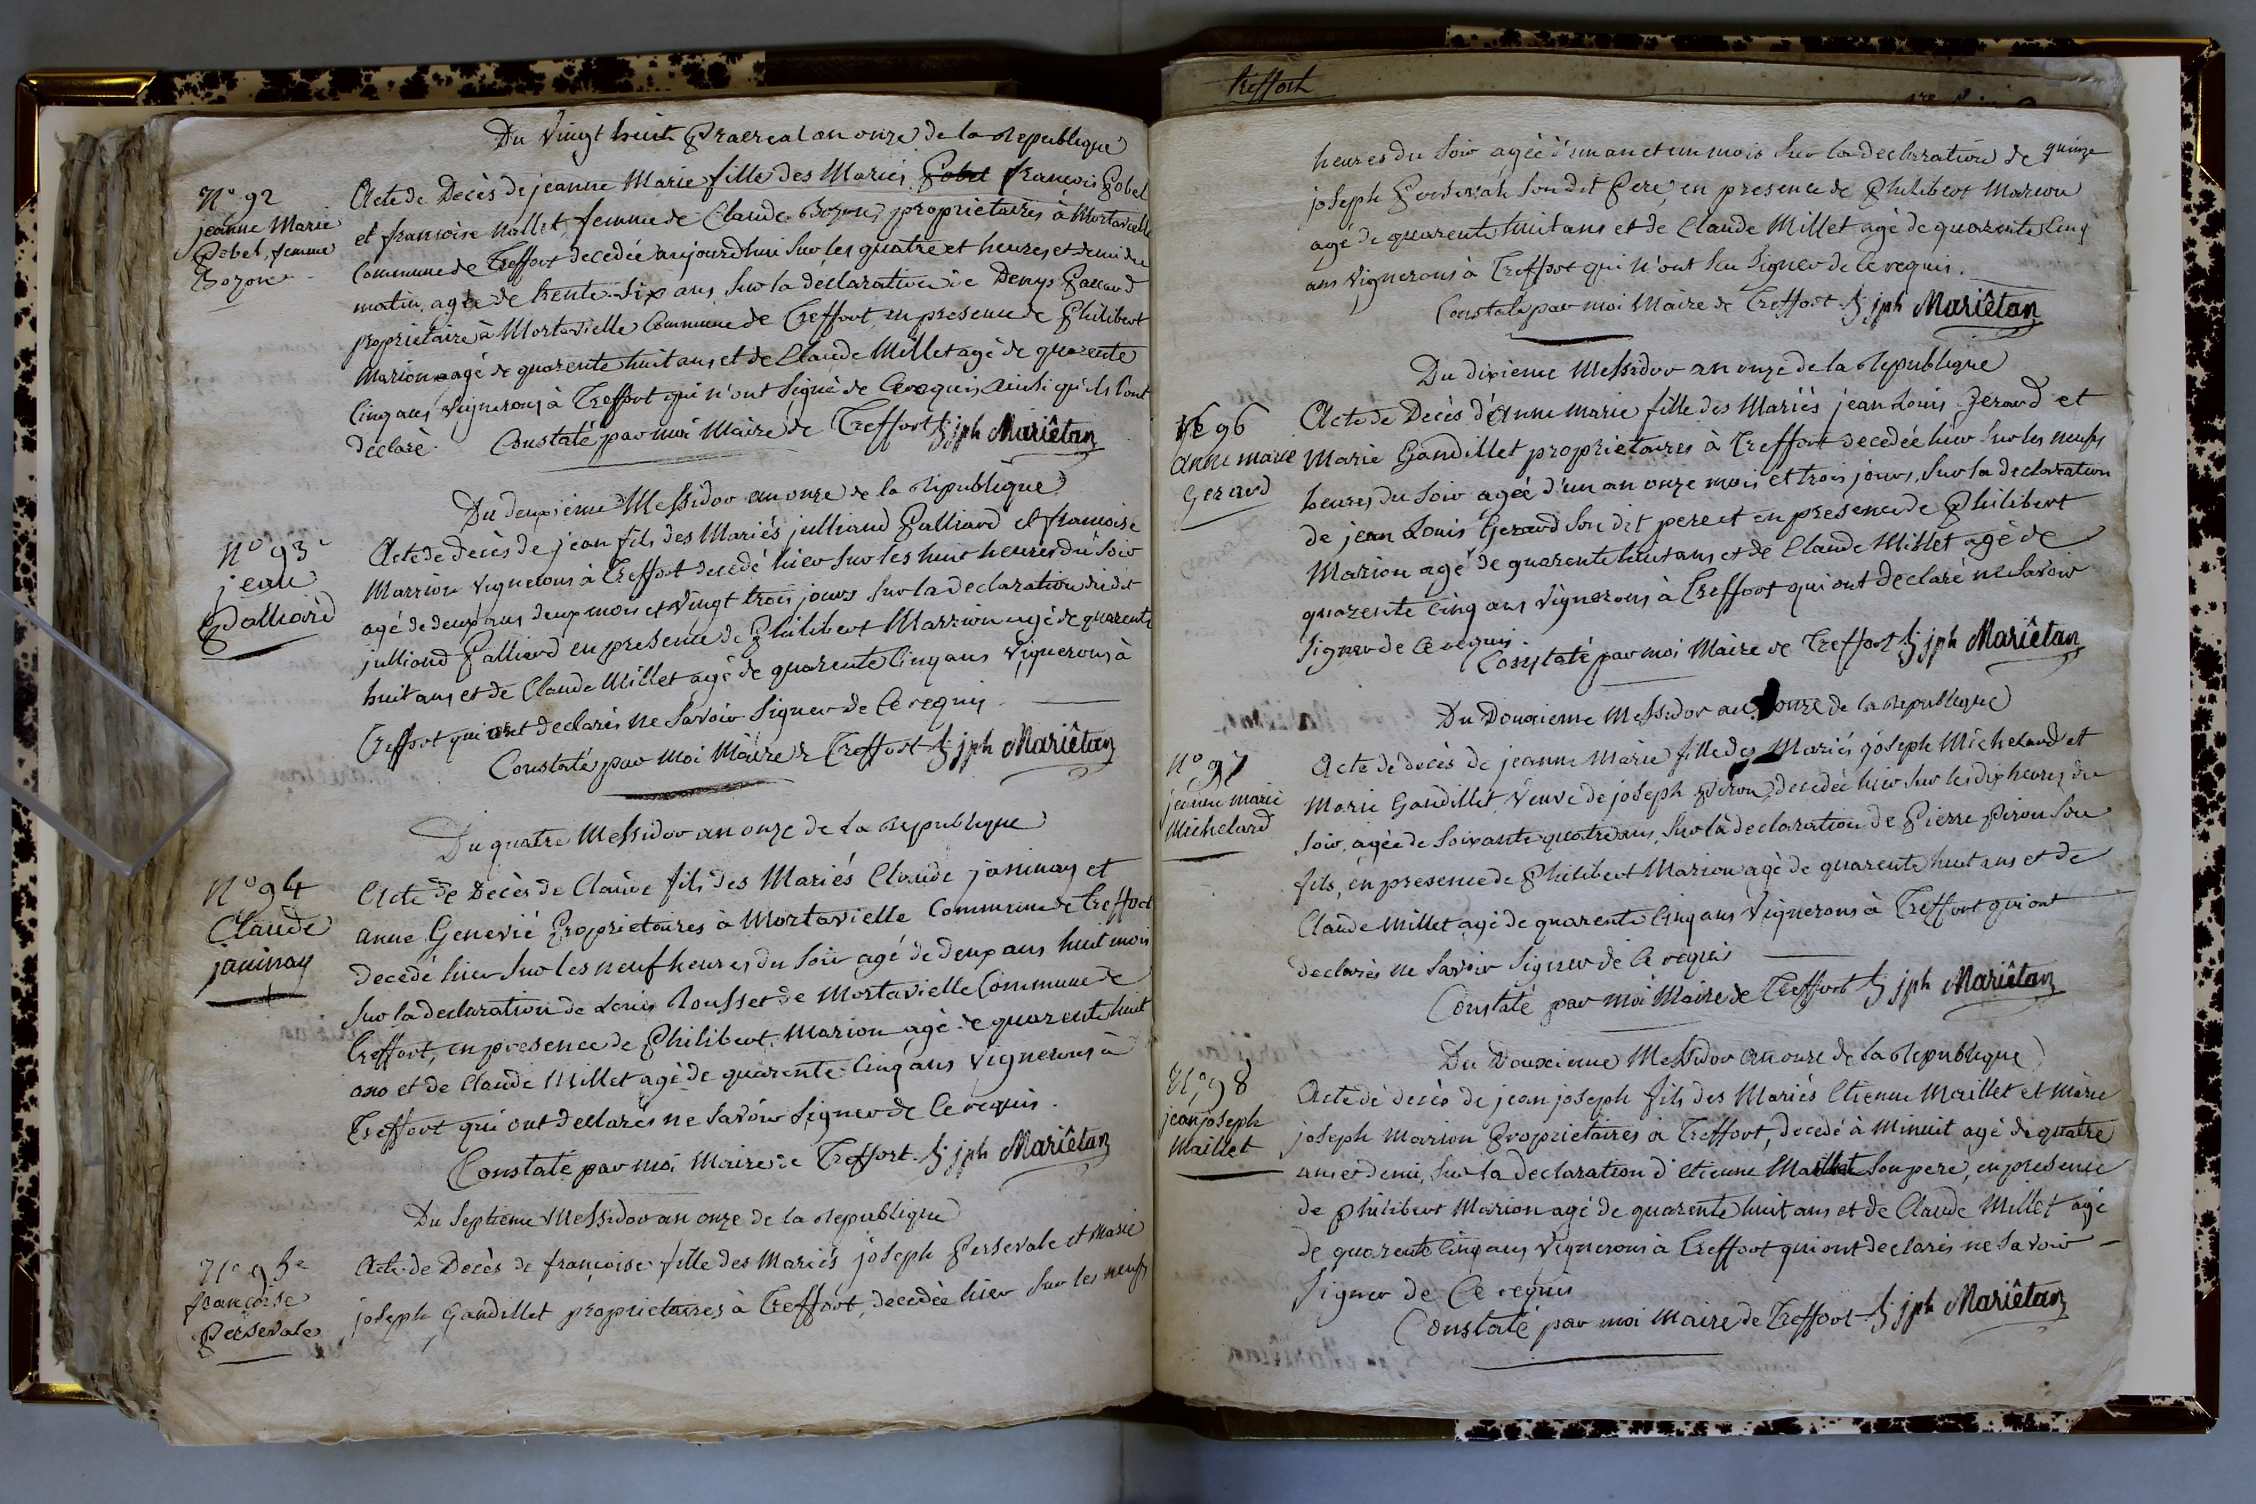 Du Vingt huit Praereal an onze de la Republique
N° 92
jeanne Marie
Pobel, femme
Bozon
Acte de Decès de jeanne Marie fille des Mariés Pobel francois Pobel
et francoise Nallet, femme de Claude Bozon, propriétaires à Mortavielle
Commune de Treffort decedée aujourdhui Sur les quatre et heures et demi du
matin, agée de trente-Six ans, Sur la déclaration de Denys
propriétaire à Mortavielle Commune de Treffort, en presence de Philibert
Marion agé de quarente huit ans et de Claude Millet agé de quarente
Cinq ans Vignerons à Treffort qui n'ont Signé de Ce requis, ainsi qu'ils l'ont
déclaré. Constaté par moi Maire de Treffort jph Mariêtan
Du deuxieme Messidor an onze de la Republique
N° 93
jean
Palliard
Acte de decès de jean fils des Mariés julliand Palliard et francoise
Marrion Vignerons à Treffort decedé hier Sur les huit heures du Soir
agé de deux ans deux mois et Vingt trois jours Sur la declaration du dit
julliand Palliard en presence de Philibert Marrion agé de quarente
huit ans et de Claude Millet agé de quarente Cinq ans Vignerons à
Treffort qui ont declarés ne Savoir Signer de Ce requis.
Constaté par Moi Maire de Treffort jph Mariêtan
Du quatre Messidor an onze de la Republique
N° 94
Claude
janinay
Acte de Decès de Claude fils des Mariés Claude janinay et
anne Genevié Proprietaires à Mortavielle Commune de Treffort
decedé hier Sur les neuf heures du Soir agé de deux ans huit mois
Sur la declaration de Louis Rousset de Mortavielle Commune de
Treffort, en presence de Philibert Marion agé de quarente huit
ans et de Claude Millet agé de quarente Cinq ans Vignerons à
Treffort qui ont declarés ne Savoir Signer de Ce requis.
Constaté par moi Maire de Treffort jph Mariêtan
Du Septieme Messidor an onze de la Republique
N° 95
francoise
Persevale
Acte de Decès de francoise fille des Mariés joseph Persevale et Marie
joseph Gandillet proprietaires à Treffort, decedée hier Sur les neufs
Treffort
heures du Soir agée d'un an et un mois Sur la declaration de quinze
joseph Persevale Son dit Pere, en presence de Philibert Marion
agé de quarente huit ans et de Claude Millet agé de quarente Cinq
ans Vignerons à Treffort qui n'ont Su Signer de Ce requis.
Constaté par moi Maire de Treffort jph Mariêtan
Du dixieme Messidor an onze de la Republique
N° 96
Anne marie
Gerard
Acte de Decès d'Anne marie fille des Mariés jean Louis Jerard et
Marie Gandillet proprietaires à Treffort decedée hier Sur les neufs
heures du Soir agée d'un an onze mois et trois jours, Sur la declaration
de jean Louis Gerard Son dit pere et en presence de Philibert
Marion agé de quarente huit ans et de Claude Millet agé de
quarente Cinq ans Vignerons à Treffort qui ont declaré ne Savoir
Signer de Ce requis.
Constaté par moi Maire de Treffort jph Mariêtan
Du Douxieme Messidor an onze de la Republique
N° 97
jeanne marie
Michelard
Acte de decès de jeanne Marie fille des Mariés joseph Michelard et
Marie Gandillet Veuve de joseph Piron, decedée hier Sur les dix heures du
Soir, agée de Soixante quatre ans, Sur la declaration de Pierre Piron Son
fils, en presence de Philibert Marion agé de quarente huit ans et de
Claude Millet agé de quarente Cinq ans Vignerons à Treffort qui ont
declarés ne Savoir Signer de Ce requis
Constaté par moi Maire de Treffort jph Mariêtan
Du Douxieme Messidor an onze de la Republique
N° 98
jean joseph
Maillet
Acte de decès de jean joseph fils des Mariés Etienne Maillet et Marie
joseph Marion Proprietaires à Treffort, decedé à Minuit agé de quatre
ans et demi, Sur la declaration d'Etienne Maillet Son pere, en presence
de Philibert Marion agé de quarente huit ans et de Claude Millet agé
de quarente Cinq ans Vignerons à Treffort qui ont declarés ne Savoir
Signer de Ce requis
Constaté par moi Maire de Treffort jph Mariêtan